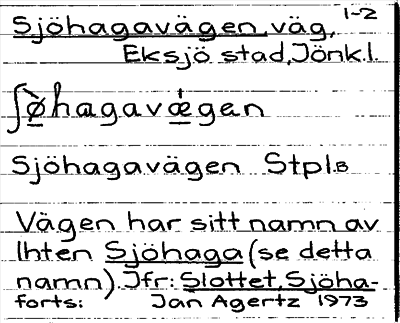 Sjöhagavägen, väg, 1-2
Eksjö stad, Jönk.l.
ʃø̀hagavǽgen
Sjöhagavägen Stpl.B
Vägen har sitt namn av
lhten Sjöhaga (se detta
namn). Jfr: Slottet, Sjöha-
forts: Jan Agertz 1973